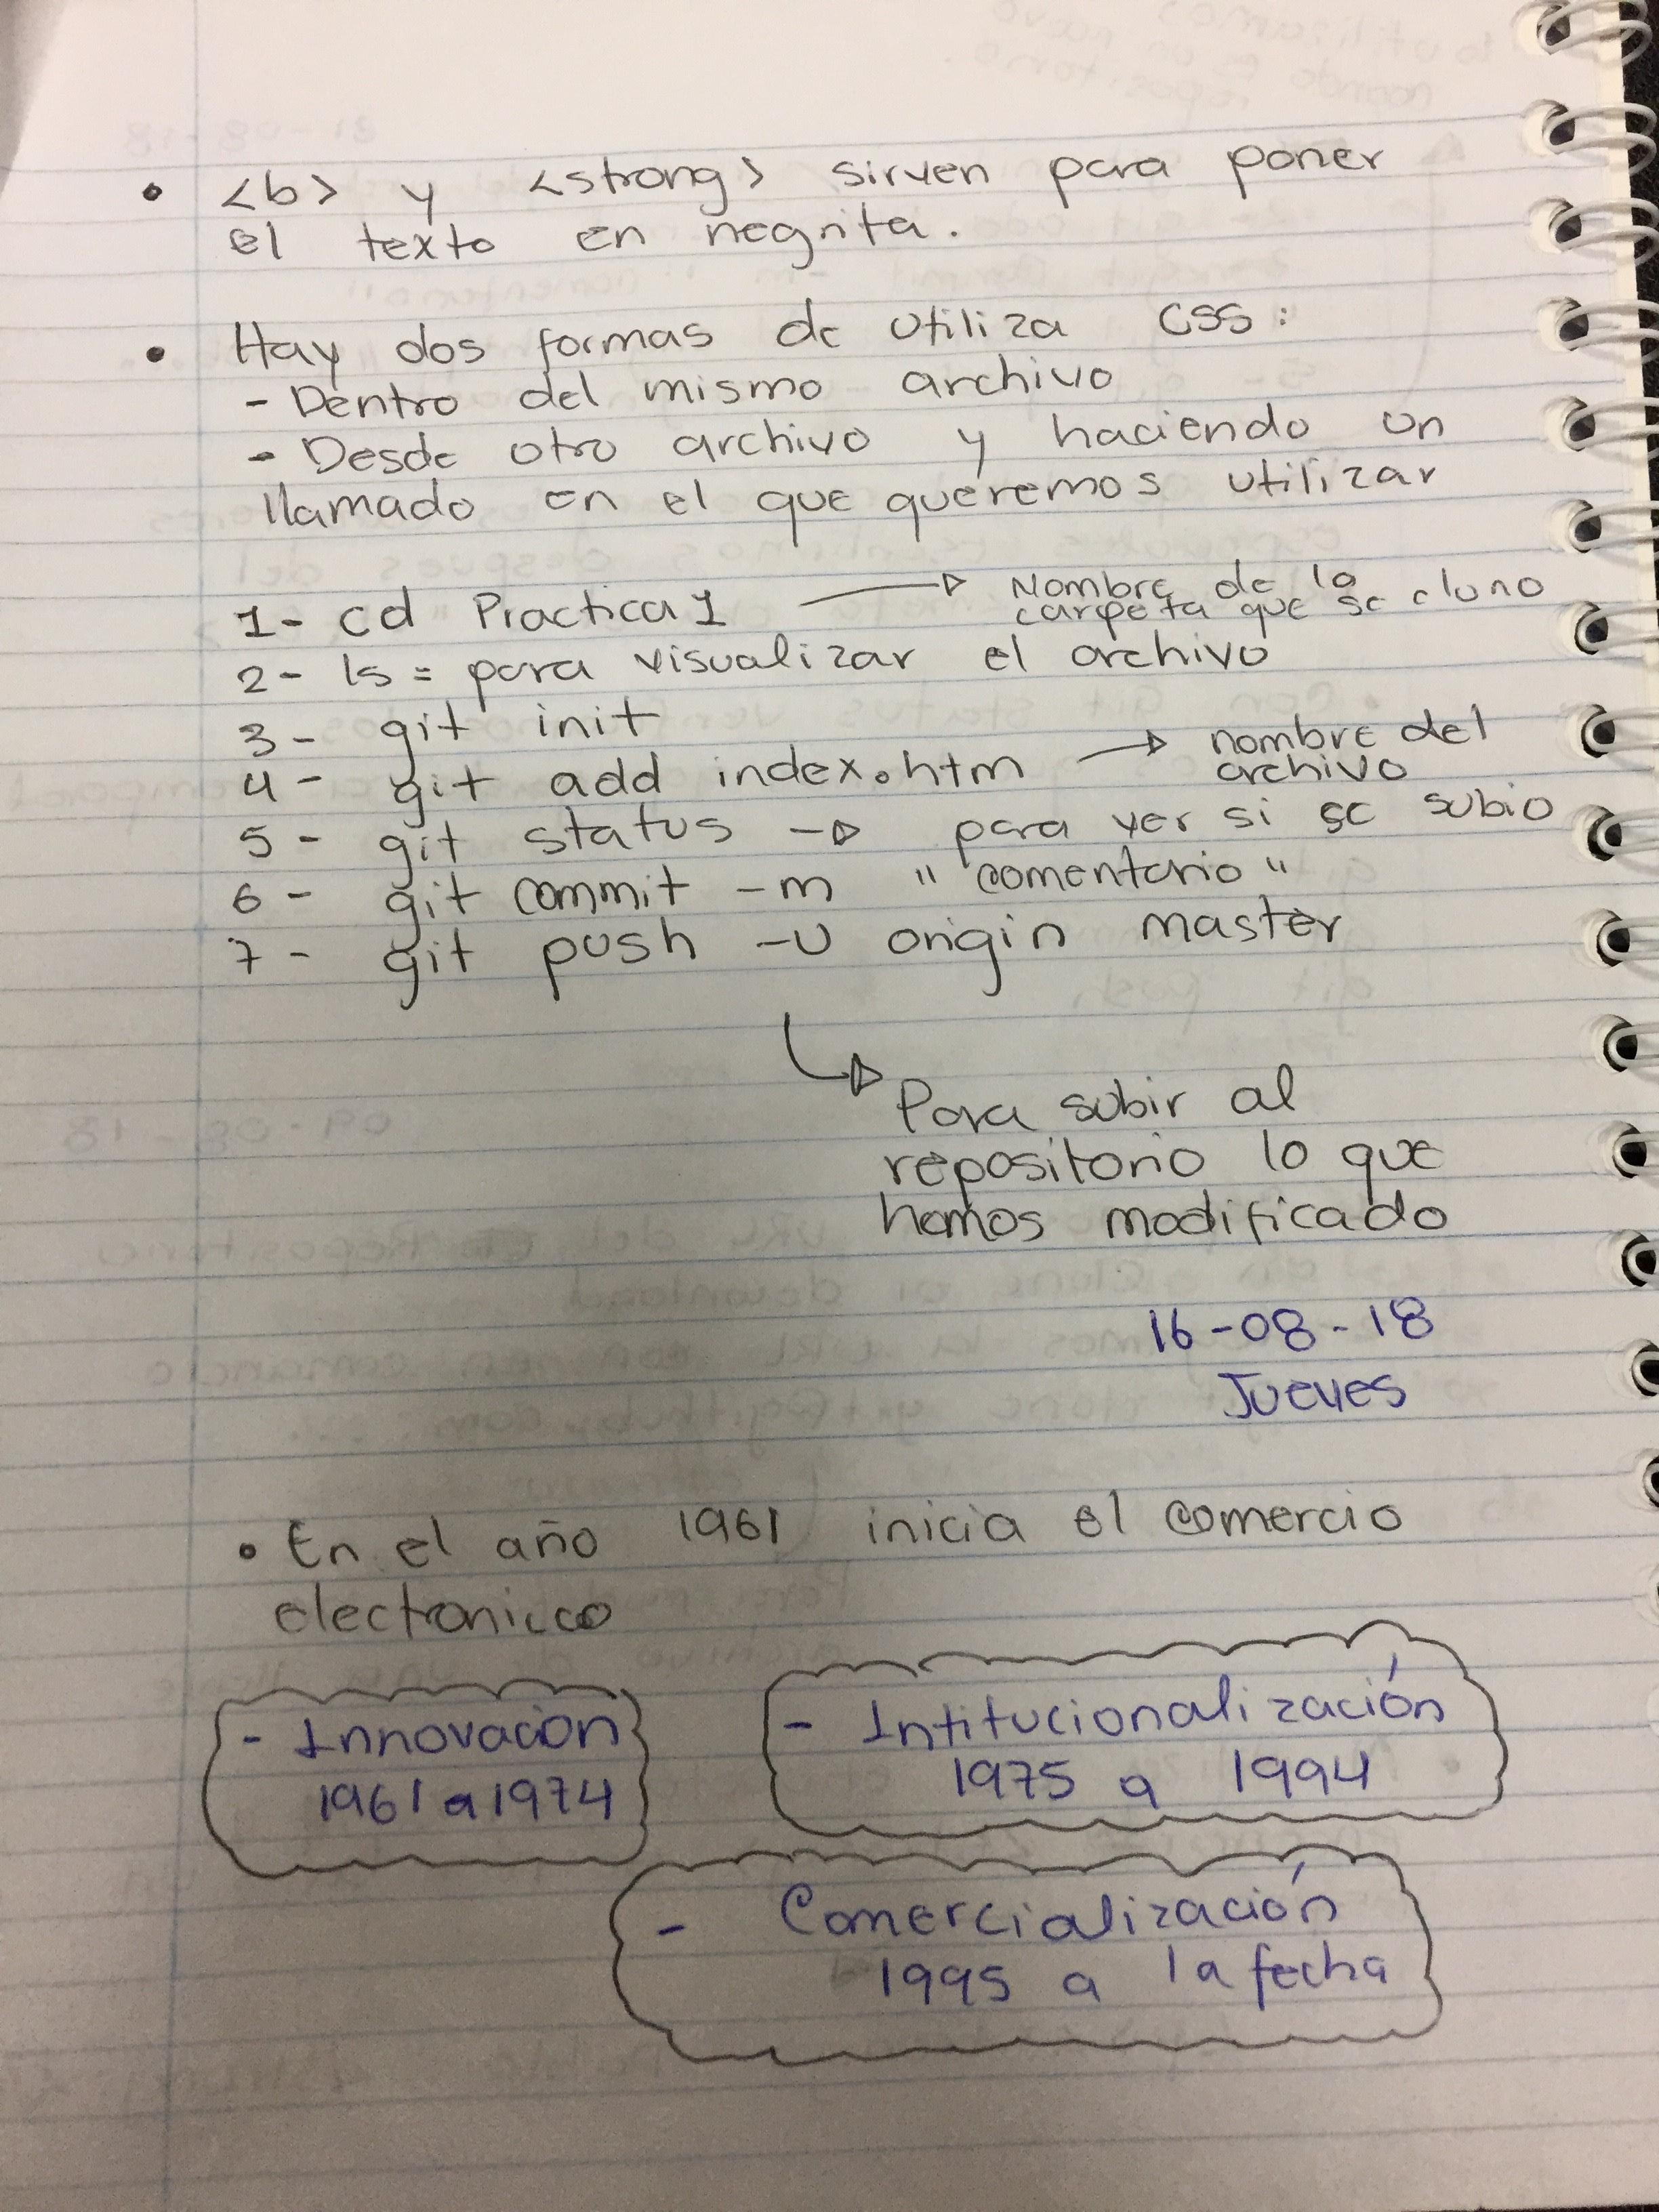 • <b> y <strong> sirven para poner
el texto en negrita.
• Hay dos formas de utiliza CSS:
- Dentro del mismo archivo
- Desde otro archivo y haciendo un
llamado en el que queremos utilizar
1- cd Practica1 → Nombre de la
carpeta que se clono
2- ls = para visualizar el archivo
3- git init
4- git add index.htm → nombre del
archivo
5- git status → para ver si se subio
6- git commit -m "comentario"
7- git push -u origin master
↳ Para subir al
repositorio lo que
hemos modificado
16-08-18
Jueves
• En el año 1961 inicia el comercio
electronico
- Innovación
1961 a 1974
- Intitucionalización
1975 a 1994
- Comercialización
1995 a la fecha